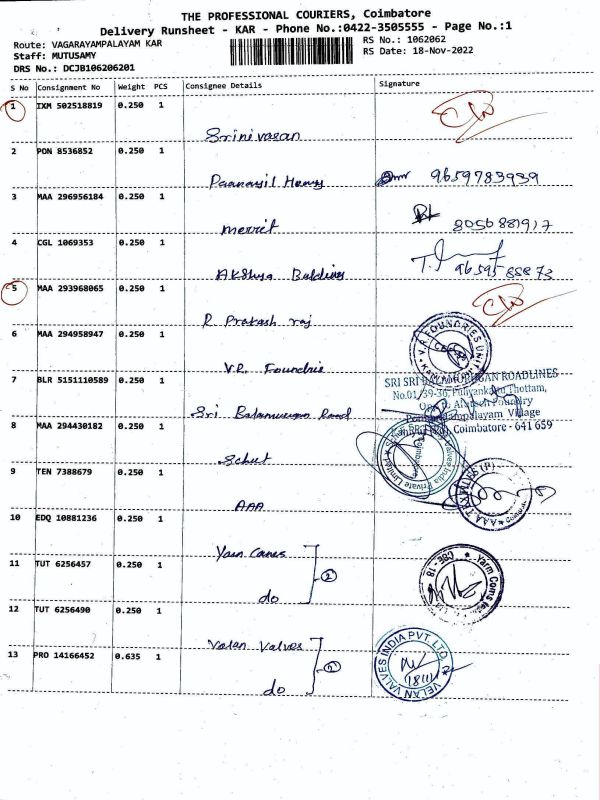 THE PROFESSIONAL COURIERS, Coimbatore
Delivery Runsheet - KAR - Phone No.:0422-3505555 - Page No.:1
Route: VAGARAYAMPALAYAM KAR
RS No.: 1062062
Staff: MUTUSAMY
RS Date: 18-Nov-2022
DRS No.: DCJB106206201
S No Consignment No Weight PCS Consignee Details Signature
1 IXM 502518819 0.250 1
Srinivasan
2 PON 8536852 0.250 1
9659783939
3 MAA 296956184 0.250 1
merrit 8056881917
4 CGL 1069353 0.250 1
Akshya
5 MAA 293968065 0.250 1
P Prakash raj
6 MAA 294958947 0.250 1
V.R. Foundrie
V.R. FOUNDRIES UNIT
7 BLR 5151110589 0.250 1
SRI SRI BALAMURUGAN ROADLINES
No.01/39-36, Puliyankattu Thottam,
Foundry
Village
Coimbatore - 641 659
Sri Balamurugan Road
8 MAA 294430182 0.250 1
Schut
India Private Limited
9 TEN 7388679 0.250 1
AAA
10 EDQ 10881236 0.250 1
11 TUT 6256457 0.250 1
2
do
CBE - 18
12 TUT 6256490 0.250 1
Valves
13 PRO 14166452 0.635 1
do
VELAN VALVES INDIA PVT. LTD.